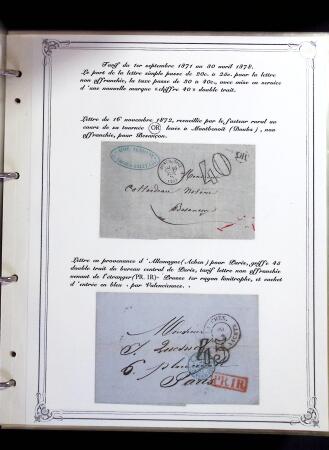 Tarif du 1er septembre 1871 au 30 avril 1878.
Le port de la lettre simple passe de 20c. à 25c. pour la lettre
non affranchie, la taxe passe de 30 à 40c. avec mise en service
d'une nouvelle marque «chiffre 40 à double trait.
Lettre du 16 novembre 1872, recueillie par le facteur rural en
cours de sa tournée (OR) levée à Montbenoit (Doubs), non
affranchie, pour Besançon.
40
Besançon
Lettre en provenance d'Allemagne (Achen) pour Paris, griffe 45
double trait du bureau central de Paris, tarif lettre non affranchie
venant de l'étranger (PR. 1R)- Prusse 1er rayon limitrophe, et cachet
d'entrée en bleu « par Valenciennes. »
Monsieur
45
6
P.R.1R
Paris